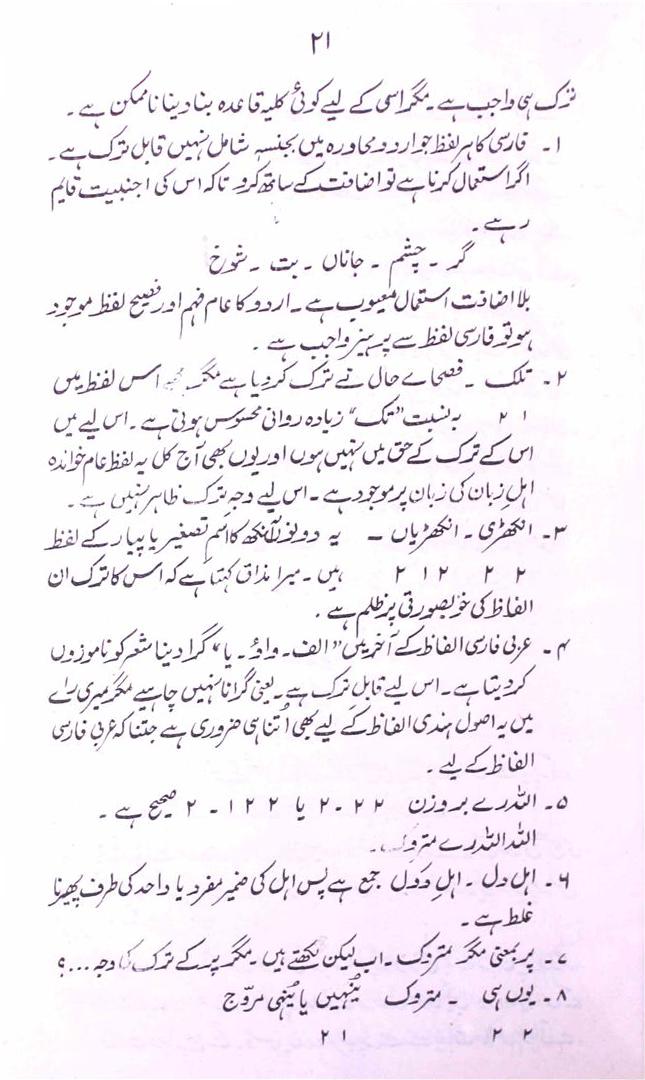 ۲۱
ترک ہی واجب ہے۔ مگر اسی کے لیے کوئی کلیہ قاعدہ بنا دینا ناممکن ہے۔
۱۔ فارسی کا ہر لفظ جو اردو محاورہ میں بجنسہٖ شامل نہیں قابل ترک ہے۔
اگر استعمال کرنا ہے تو اضافت کے ساتھ کرو تاکہ اس کی اجنبیت قایم
رہے۔
گر۔ چشم۔ جاناں۔ بت۔ شوخ
بلا اضافت استعمال معیوب ہے۔ اردو کا عام فہم اور فصیح لفظ موجود
ہو تو فارسی لفظ سے پرہیز واجب ہے۔
۲۔ تلک۔ فصحاے حال نے ترک کر دیا ہے مگر مجھے اس لفظ میں
۲ ۱ بہ نسبت "تک" زیادہ روانی محسوس ہوتی ہے۔ اس لیے میں
اس کے ترک کے حق میں نہیں ہوں اور یوں بھی آج کل یہ لفظ عام خواندہ
اہلِ زبان کی زبان پر موجود ہے۔ اس لیے وجہ ترک ظاہر نہیں ہے۔
۳۔ انکھڑی۔ انکھڑیاں ۔ یہ دونوں آنکھ کا اسمِ تصغیر یا پیار کے لفظ
۲ ۲ ۲ ۱ ۲ ہیں۔ میرا مذاق کہتا ہے کہ اس کا ترک ان
الفاظ کی خوبصورتی پر ظلم ہے۔
۴۔ عربی فارسی الفاظ کے آخر میں "الف۔ واؤ۔ یا" گرا دینا شعر کو ناموزوں
کر دیتا ہے۔ اس لیے قابلِ ترک ہے۔ یعنی گرانا نہیں چاہیے مگر میری راے
میں یہ اصول ہندی الفاظ کے لیے بھی اُتنا ہی ضروری ہے جتنا کہ عربی فارسی
الفاظ کے لیے۔
۵۔ اللہ رے بروزن ۲ ۲ ۔ ۲ یا ۲ ۲ ۱ ۔ ۲ صحیح ہے۔
اللہ اللہ رے متروک۔
۶۔ اہل دل۔ اہلِ دَوَل جمع ہے پس اہل کی ضمیر مفرد یا واحد کی طرف پھیرنا
غلط ہے۔
۷۔ پر بمعنی مگر متروک۔ اب لیکن لکھتے ہیں۔ مگر پر کے ترک کی وجہ ...؟
۸۔ یوں ہی ۔ متروک یُنہیں یا یُنہی مروّج
۲ ۲ ۱ ۲